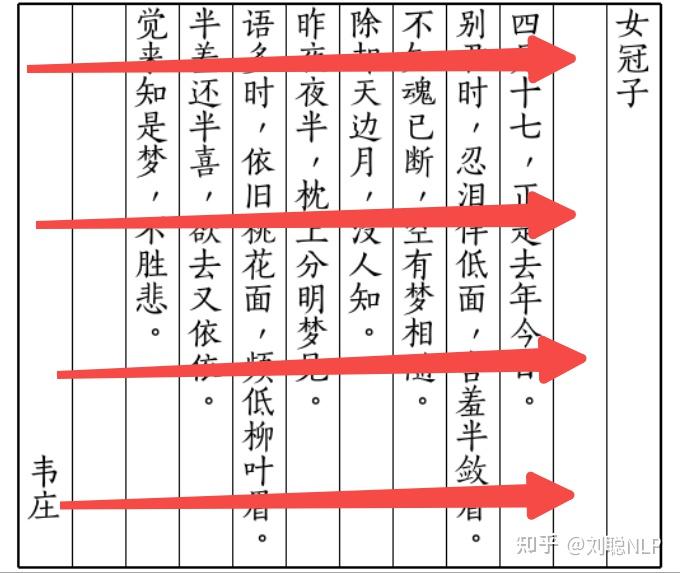 女冠子
四月十七，正是去年今日。
别君时，忍泪佯低面，含羞半敛眉。
不知魂已断，空有梦相随。
除却天边月，没人知。
昨夜夜半，枕上分明梦见。
语多时，依旧桃花面，频低柳叶眉。
半羞还半喜，欲去又依依。
觉来知是梦，不胜悲。
韦庄
知乎 @刘聪NLP